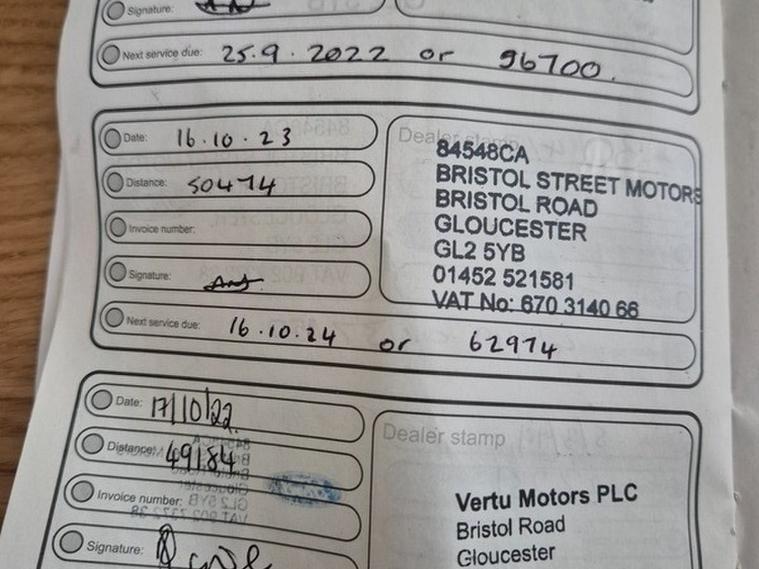 Signature:
Next service due: 25.9.2022 or 96700.
Date: 16.10.23
Distance: 50474
Invoice number:
Signature:
Next service due: 16.10.24 or 62974
Dealer stamp
84548CA
BRISTOL STREET MOTORS
BRISTOL ROAD
GLOUCESTER
GL2 5YB
01452 521581
VAT No: 670 3140 66
Date: 17/10/22
Distance: 49184
Invoice number:
Signature:
Dealer stamp
Vertu Motors PLC
Bristol Road
Gloucester